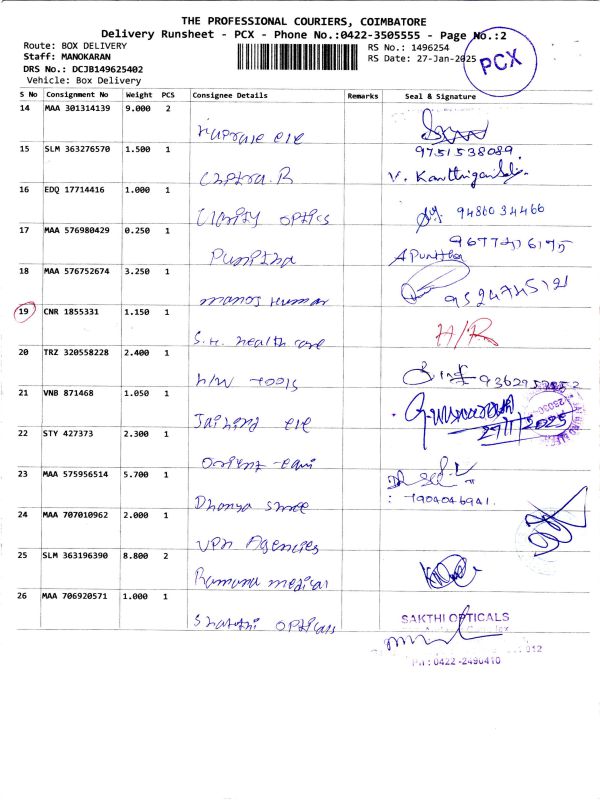 THE PROFESSIONAL COURIERS, COIMBATORE
Delivery Runsheet - PCX - Phone No.:0422-3505555 - Page No.:2
Route: BOX DELIVERY
RS No.: 1496254
Staff: MANOKARAN
RS Date: 27-Jan-2025
PCX
DRS No.: DCJB149625402
Vehicle: Box Delivery
S No Consignment No Weight PCS Consignee Details Remarks Seal & Signature
14 MAA 301314139 9.000 2
ele
15 SLM 363276570 1.500 1
9751538089
Chitra.R V. Karthiga
16 EDQ 17714416 1.000 1
Clarity optics 9486034466
17 MAA 576980429 0.250 1
Punitha A Punitha
18 MAA 576752674 3.250 1
manoj kumar
19 CNR 1855331 1.150 1 H/R
S.H. health care
20 TRZ 320558228 2.400 1
h/w tools
21 VNB 871468 1.050 1
Jaihind ele 27/1/2025
22 STY 427373 2.300 1
Orient
23 MAA 575956514 5.700 1
Dhanya shree 7904046941
24 MAA 707010962 2.000 1
VPN Agencies
25 SLM 363196390 8.800 2
Ramana medical
26 MAA 706920571 1.000 1
SAKTHI OPTICALS
Shakthi opticals
012
Ph : 0422-2490410